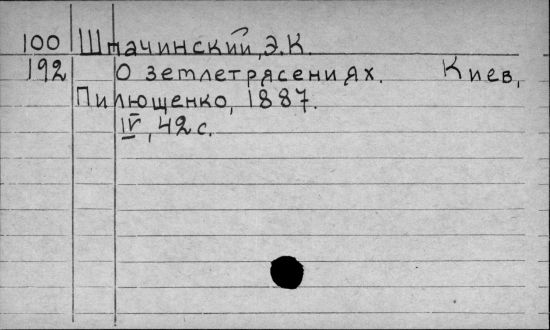 100 Шпачинский, Э.К.
192 О землетрясениях. Киев,
Пилющенко, 1887.
IV, 42 с.